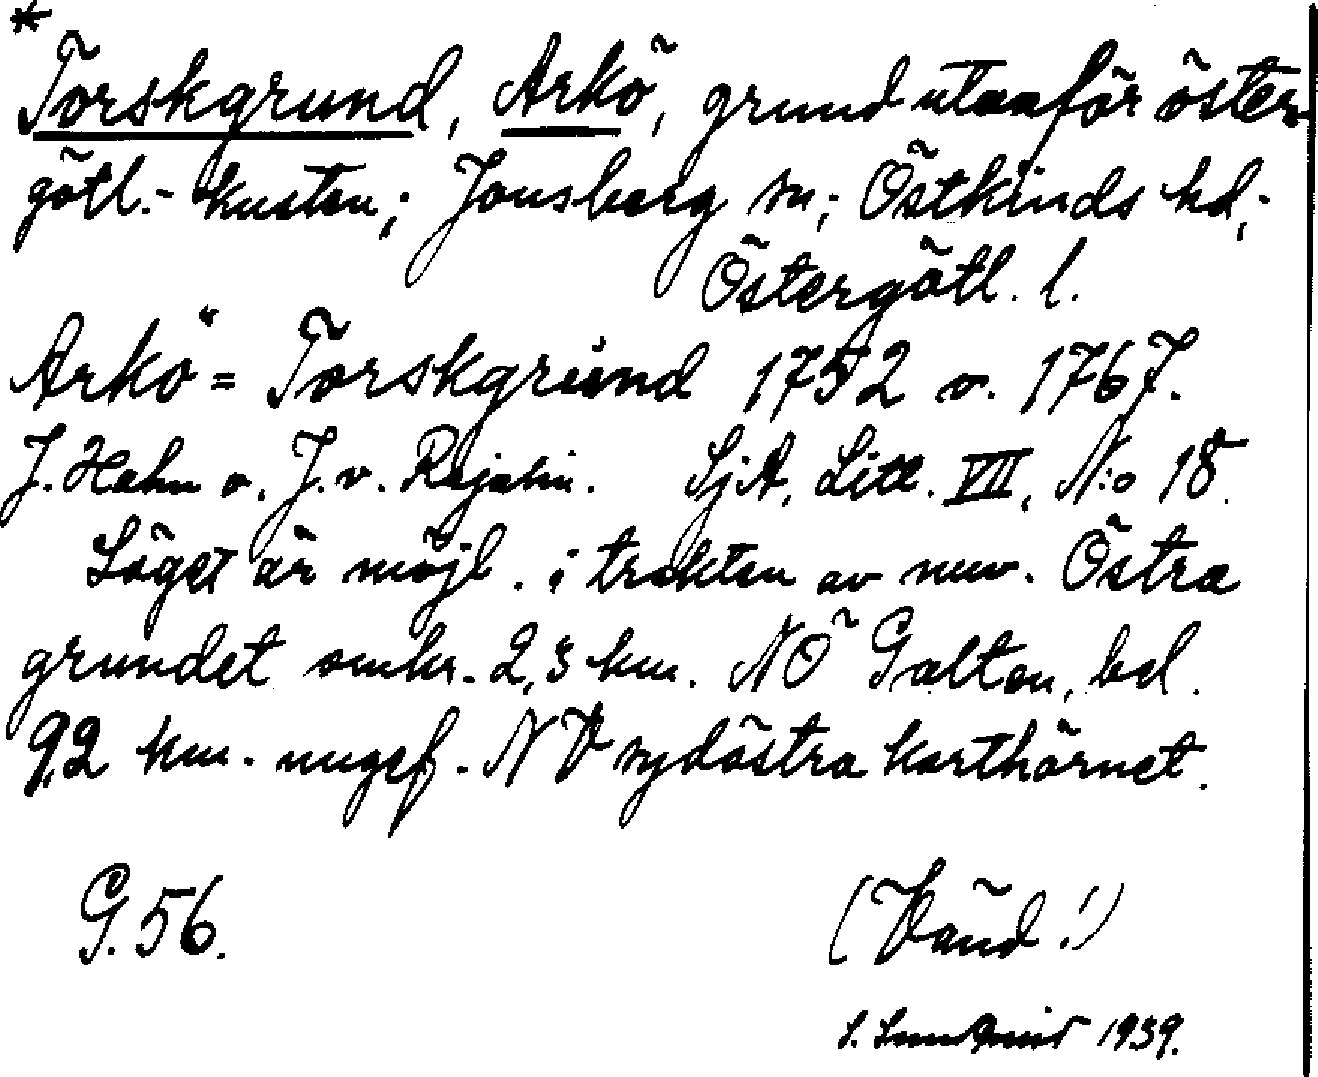 *
Torskgrund, Arkö, grund utanför öster
götl.- kusten; Jonsberg sn; Östkinds hd;
Östergötl. l.
Arkö = Torskgrund 1752 o. 1767.
J. Hahn o. J. v. Rajalin. SjA, Litt. VII, N:o 18.
Läget är möjl. i trakten av nuv. Östra
grundet omkr. 2,3 km. NÖ Galten, bel.
9,2 km. ungef. NV sydöstra karthörnet.
G. 56.
(Vänd!)
S. 1939.